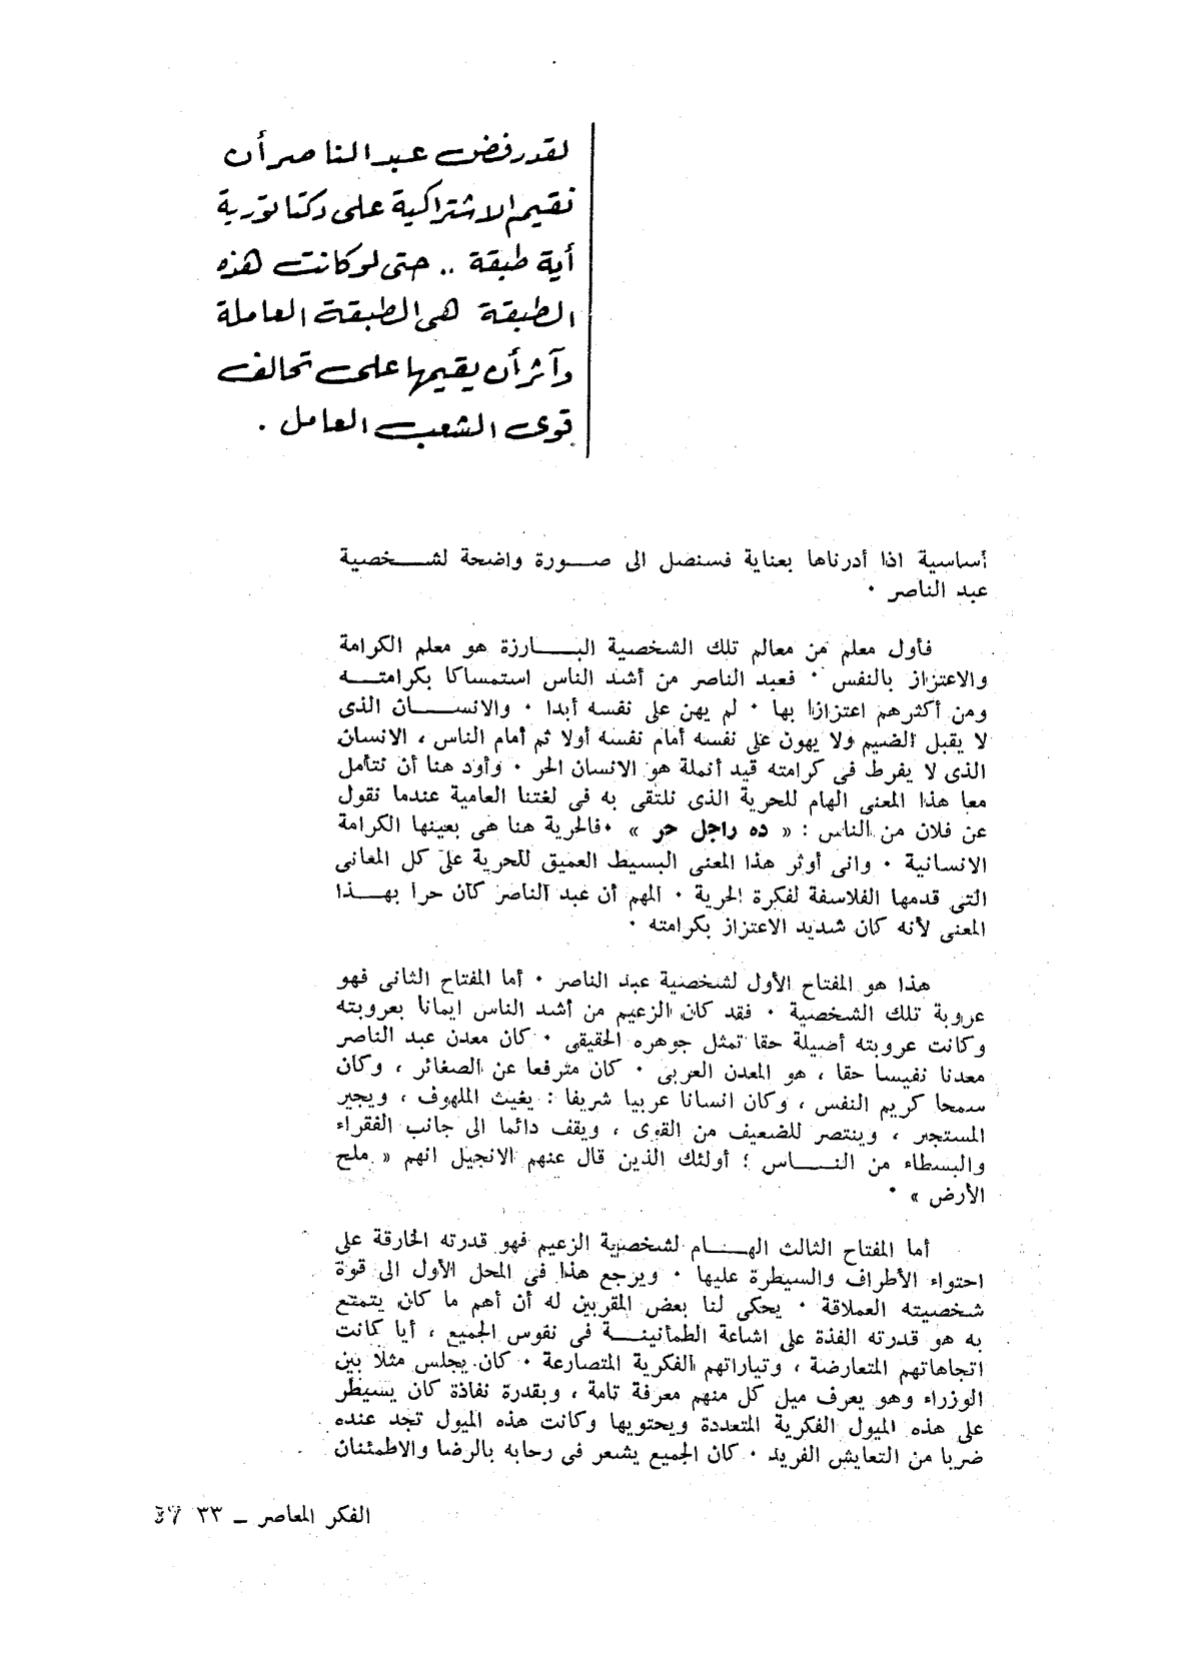 لقد رفض عبد الناصر أن
نقيم الاشتراكية على دكتاتورية
أية طبقة .. حتى لو كانت هذه
الطبقة هى الطبقة العاملة
وآثر أن يقيمها على تحالف
قوى الشعب العامل .
أساسية اذا أدرناها بعناية فسنصل الى صورة واضحة لشخصية
عبد الناصر .
فأول معلم من معالم تلك الشخصية البارزة هو معلم الكرامة
والاعتزاز بالنفس . فعبد الناصر من أشد الناس استمساكا بكرامته
ومن أكثرهم اعتزازا بها . لم يهن على نفسه أبدا . والانسان الذى
لا يقبل الضيم ولا يهون على نفسه أمام نفسه أولا ثم أمام الناس ، الانسان
الذى لا يفرط فى كرامته قيد أنملة هو الانسان الحر . وأود هنا أن نتأمل
معا هذا المعنى الهام للحرية الذى نلتقى به فى لغتنا العامية عندما نقول
عن فلان من الناس : « ده راجل حر » . فالحرية هنا هى بعينها الكرامة
الانسانية . وانى أوثر هذا المعنى البسيط العميق للحرية على كل المعانى
التى قدمها الفلاسفة لفكرة الحرية . المهم أن عبد الناصر كان حرا بهذا
المعنى لأنه كان شديد الاعتزاز بكرامته .
هذا هو المفتاح الأول لشخصية عبد الناصر . أما المفتاح الثانى فهو
عروبة تلك الشخصية . فقد كان الزعيم من أشد الناس ايمانا بعروبته
وكانت عروبته أصيلة حقا تمثل جوهره الحقيقى . كان معدن عبد الناصر
معدنا نفيسا حقا ، هو المعدن العربى . كان مترفعا عن الصغائر ، وكان
سمحا كريم النفس ، وكان انسانا عربيا شريفا : يغيث الملهوف ، ويجير
المستجير ، وينتصر للضعيف من القوى ، ويقف دائما الى جانب الفقراء
والبسطاء من الناس ؛ أولئك الذين قال عنهم الانجيل انهم « ملح
الأرض » .
أما المفتاح الثالث الهام لشخصية الزعيم فهو قدرته الخارقة على
احتواء الأطراف والسيطرة عليها . ويرجع هذا فى المحل الأول الى قوة
شخصيته العملاقة . يحكى لنا بعض المقربين له أن أهم ما كان يتمتع
به هو قدرته الفذة على اشاعة الطمأنينة فى نفوس الجميع ، أيا كانت
اتجاهاتهم المتعارضة ، وتياراتهم الفكرية المتصارعة . كان يجلس مثلا بين
الوزراء وهو يعرف ميل كل منهم معرفة تامة ، وبقدرة نفاذة كان يسيطر
على هذه الميول الفكرية المتعددة ويحتويها وكانت هذه الميول تجد عنده
ضربا من التعايش الفريد . كان الجميع يشعر فى رحابه بالرضا والاطمئنان
الفكر المعاصر ـ ٣٣